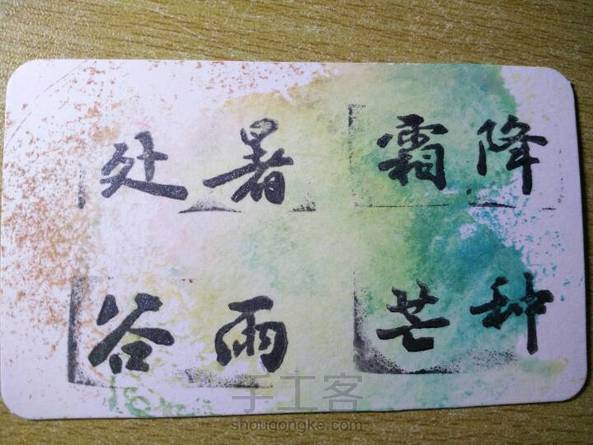 处暑 霜降
谷雨 芒种
手工客
shougongke.com